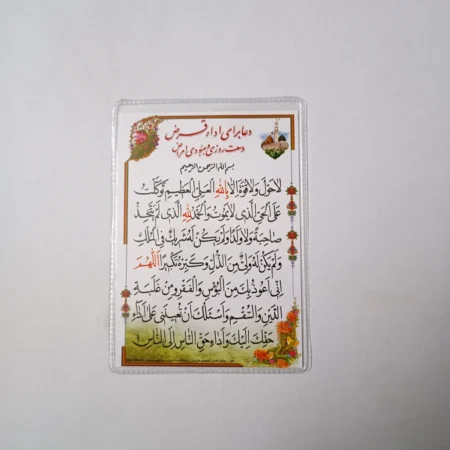 دعا برای اداء قرض
وسعت روزی و بهبودی امراض
بسم الله الرحمن الرحیم
لاحَوْلَ وَلا قُوَّةَ اِلّا بِاللهِ الْعَلِیِّ الْعَظیمِ تَوَکَّلْتُ
عَلَی الْحَیِّ الَّذی لا یَمُوتُ وَالْحَمْدُ لِلّهِ الَّذی لَمْ یَتَّخِذْ
صاحِبَةً وَلا وَلَدًا وَلَمْ یَکُنْ لَهُ شَریکٌ فِی الْمُلْکِ
وَلَمْ یَکُنْ لَهُ وَلِیٌّ مِنَ الذُّلِّ وَکَبِّرْهُ تَکْبیرًا اَللّهُمَّ
اِنّی اَعُوذُ بِکَ مِنَ الْبُؤْسِ وَالْفَقْرِ وَمِنْ غَلَبَةِ
الدَّیْنِ وَالسُّقْمِ وَاَسْئَلُکَ اَنْ تُعینَنی عَلی اَداءِ
حَقِّکَ اِلَیْکَ وَاَداءِ حَقِّ النّاسِ اِلَی النّاسِ